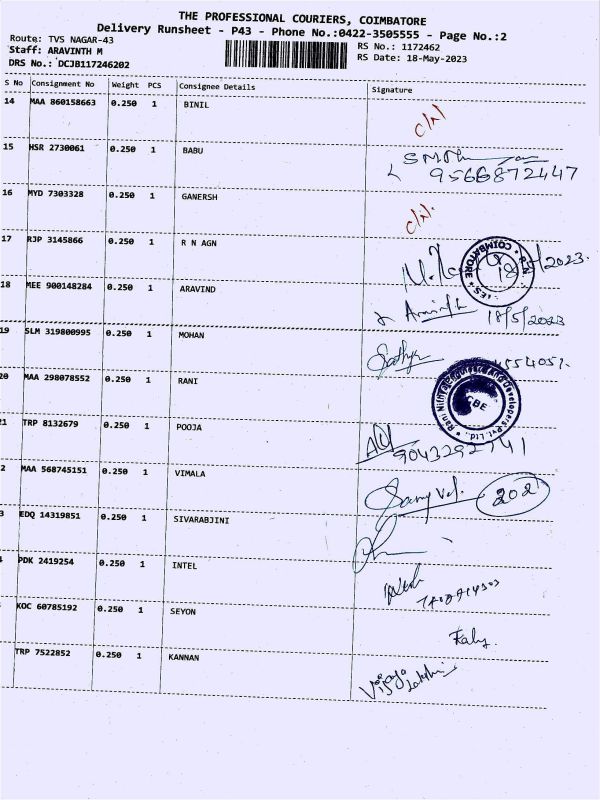 THE PROFESSIONAL COURIERS, COIMBATORE
Delivery Runsheet - P43 - Phone No.:0422-3505555 - Page No.:2
Route: TVS NAGAR-43
Staff: ARAVINTH M
DRS No.: DCJB117246202
RS No.: 1172462
RS Date: 18-May-2023
S No Consignment No Weight PCS Consignee Details Signature
14 MAA 860158663 0.250 1 BINIL
15 HSR 2730061 0.250 1 BABU
9566872447
16 MYD 7303328 0.250 1 GANERSH
17 RJP 3145866 0.250 1 R N AGN
COIMBATORE
18 MEE 900148284 0.250 1 ARAVIND
18/5/2023
19 SLM 319800995 0.250 1 MOHAN
Sathya
20 MAA 298078552 0.250 1 RANI
CBE
21 TRP 8132679 0.250 1 POOJA
2 MAA 568745151 0.250 1 VIMALA
202
3 EDQ 14319851 0.250 1 SIVARABJINI
PDK 2419254 0.250 1 INTEL
KOC 60785192 0.250 1 SEYON
TRP 7522852 0.250 1 KANNAN